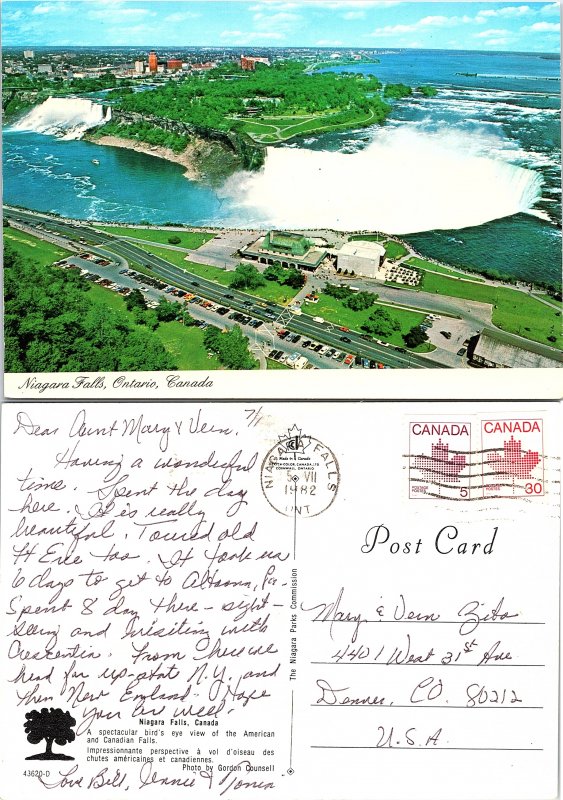 Niagara Falls, Ontario, Canada
Dear Aunt Mary & Vern. 7/1
Having a wonderful
time. Spent the day
here. It is really
beautiful. Toured old
Ft Erie too. It took us
6 days to get to Altoona, Pa.
Spent 8 day there - sight-
seeing and visiting with
Crescentia. From here we
head for up-state N.Y. and
then New England. Hope
you are well.
Love Bill, Jennie &
Niagara Falls, Canada
A spectacular bird's eye view of the American
and Canadian Falls.
Impressionnante perspective à vol d'oiseau des
chutes américaines et canadiennes.
43620-D
Photo by Gordon Counsell
The Niagara Parks Commission
Made in Canada
CANADA LTD.
CORNWALL, ONTARIO
NIAGARA FALLS
5 VII
1982
ONT
CANADA
5
CANADA
30
Post Card
Mary & Vern Zito
4401 West 31st Ave
Denver, CO. 80212
U.S.A.